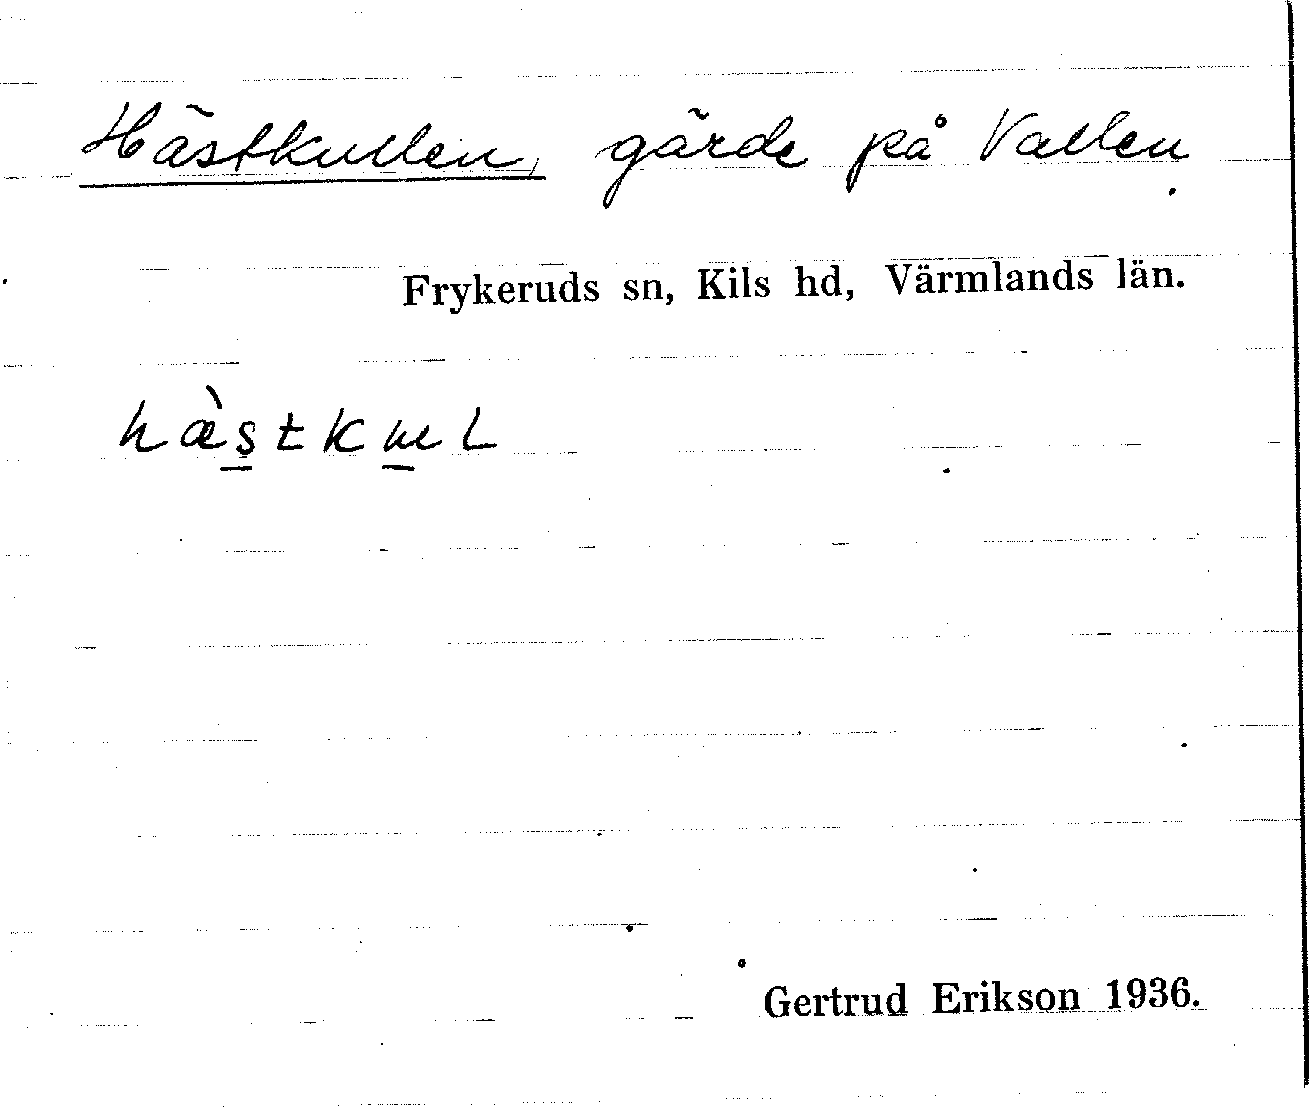 Hästkullen, gärde på Vallen
Frykeruds sn, Kils hd, Värmlands län.
hæ̀s̲tku̲L
Gertrud Erikson 1936.